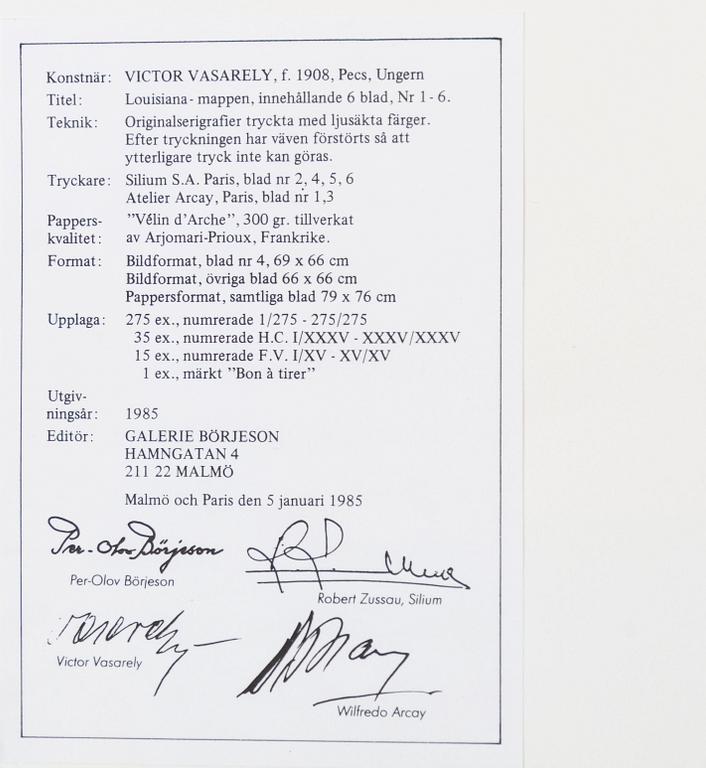 Konstnär: VICTOR VASARELY, f. 1908, Pecs, Ungern
Titel: Louisiana-mappen, innehållande 6 blad, Nr 1-6.
Teknik: Originalserigrafier tryckta med ljusäkta färger.
Efter tryckningen har väven förstörts så att
ytterligare tryck inte kan göras.
Tryckare: Silium S.A. Paris, blad nr 2, 4, 5, 6
Atelier Arcay, Paris, blad nr 1,3
Pappers- "Vélin d'Arche", 300 gr. tillverkat
kvalitet: av Arjomari-Prioux, Frankrike.
Format: Bildformat, blad nr 4, 69 x 66 cm
Bildformat, övriga blad 66 x 66 cm
Pappersformat, samtliga blad 79 x 76 cm
Upplaga: 275 ex., numrerade 1/275 - 275/275
35 ex., numrerade H.C. I/XXXV - XXXV/XXXV
15 ex., numrerade F.V. I/XV - XV/XV
1 ex., märkt "Bon à tirer"
Utgiv-
ningsår: 1985
Editör: GALERIE BÖRJESON
HAMNGATAN 4
211 22 MALMÖ
Malmö och Paris den 5 januari 1985
Per-Olov Börjeson
Per-Olov Börjeson
Robert Zussau, Silium
Vasarely
Victor Vasarely
Arcay
Wilfredo Arcay